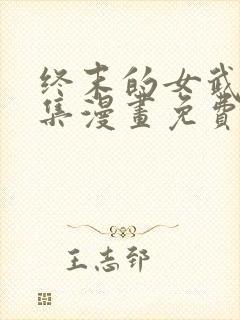 終末的女武
集漫畫免費
王志郅